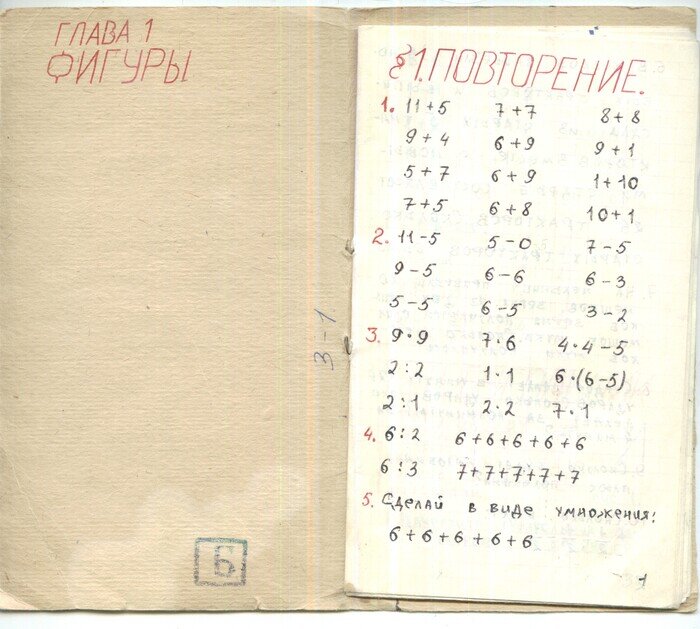 ГЛАВА 1
ФИГУРЫ
3-1
Б
§1. ПОВТОРЕНИЕ.
1. 11+5 7+7 8+8
9+4 6+9 9+1
5+7 6+9 1+10
7+5 6+8 10+1
2. 11-5 5-0 7-5
9-5 6-6 6-3
5-5 6-5 3-2
3. 9·9 7·6 4·4-5
2:2 1·1 6·(6-5)
2:1 2·2 7·1
4. 6:2 6+6+6+6+6
6:3 7+7+7+7+7
5. Сделай в виде умножения:
6+6+6+6+6
1